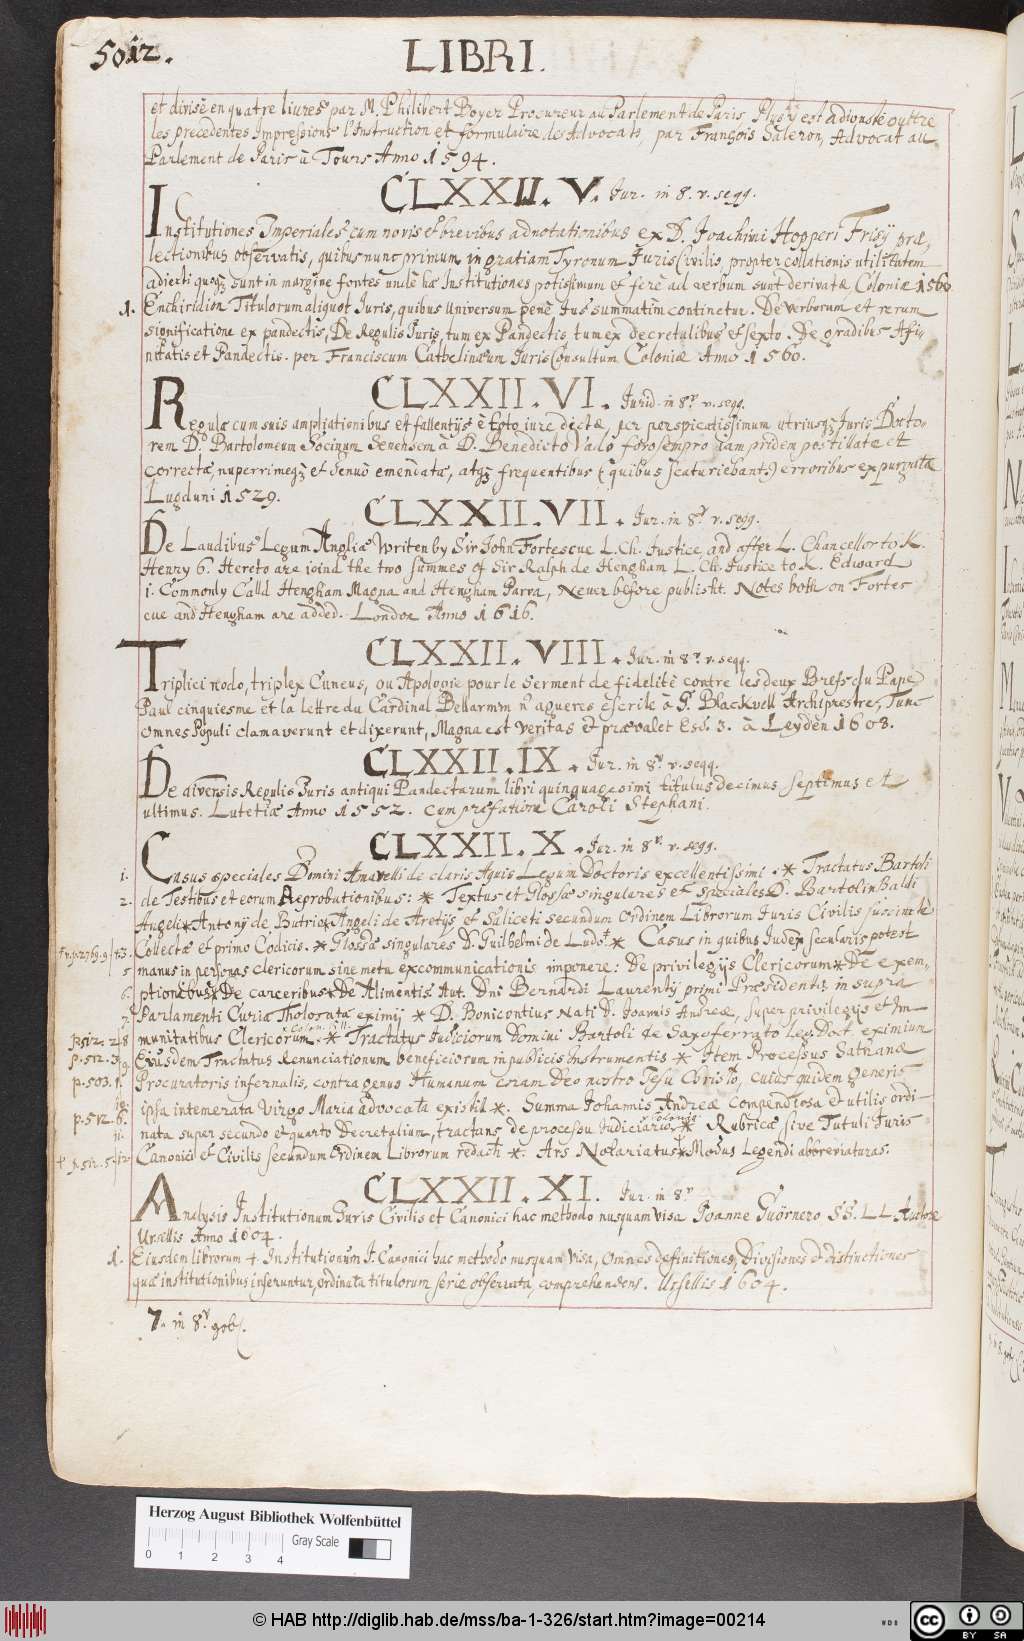 5012.
LIBRI.
et divisé en quatre livres par M. Philibert Boyer Procureur au Parlement de Paris Plus y est adiousté oultre
les precedentes Impressions l'Instruction et formulaire des Advocats, par François Saleron, Advocat au
Parlement de Paris à Tours Anno 1594.
CLXXII. V. Jur. in 8. v. seqq.
Institutiones Imperiales cum novis et brevibus adnotationibus ex D. Joachimi Hopperi Frisij præ-
lectionibus observatis, quibus nunc primum in gratiam Tyronum Juris Civilis, propter collationis utilitatem
adiecti quoq; sunt in margine fontes unde hæ Institutiones potissimum et ferè ad verbum sunt derivatæ Coloniæ 1560
1. Enchiridion Titulorum aliquot Juris, quibus universum penè Jus summatim continetur. De verborum et rerum
significatione ex pandectis, De Regulis Juris, tum ex Pandectis, tum ex decretalibus et sexto. De gradibus Affi-
nitatis et Pandectis. per Franciscum Cathelinæum Juris Consultum Coloniæ Anno 1560.
CLXXII. VI. Jurid. in 8.r v. seqq.
Regulæ cum suis ampliationibus et fallentijs è toto iure dectæ, per perspicatissimum utriusq; Juris Docto-
rem D. Bartolomeum Socinum Senensem à D. Benedicto Vado forosempro iam pridem postillatæ et
correctæ, nuperrimeq; et denuò emendatæ, atq; frequentibus (quibus scaturiebant) erroribus expurgatæ
Lugduni 1529.
CLXXII. VII. Jur. in 8.r v. seqq.
De Laudibus Legum Angliæ Writen by Sir John Fortescue L. Ch. Justice, and after L. Chancellor to K.
Henry 6. Hereto are joind the two summes of Sir Ralph de Hengham L. Ch. Justice to K. Edward
i. Commonly Calld Hengham Magna and Hengham Parva, Never before publisht. Notes both on Fortes
cue and Hengham are added. London Anno 1616.
CLXXII. VIII. Jur. in 8.r v. seqq.
Triplici nodo, triplex Cuneus, ou Apologie pour le Serment de fidelité contre les deux Brefs du Pape
Paul cinquiesme et la lettre du Cardinal Bellarmin n'agueres escrite à G. Blackvell Archiprestre, Tunc
omnes Populi clamaverunt et dixerunt, Magna est veritas et prævalet Esd. 3. à Leyden 1608.
CLXXII. IX. Jur. in 8.r v. seqq.
De diversis Regulis Juris antiqui Pandectarum libri quinquagesimi titulus decimus septimus et
ultimus. Lutetiæ Anno 1552. cum præfatione Caroli Stephani.
CLXXII. X. Jur. in 8.r v. seqq.
1. Casus speciales Domini Amavelli de claris Aquis Legum Doctoris excellentissimi. * Tractatus Bartoli
2. de Testibus et eorum Reprobationibus: * Textus et Glossæ singulares et speciales D. Bartolin Baldi
Angeli * Antonij de Butrio * Angeli de Aretijs et Saliceti secundum Ordinem Librorum Juris Civilis succincte
Collectæ et primo Codicis. * Glossæ singulares D. Guilhelmi de Ludo * Casus in quibus Judex secularis potest
5 manus in personas clericorum sine metu excommunicationis imponere: De privilegijs Clericorum * De exem-
6. ptionibus * De carceribus * De Alimentis Aut. Dni Bernardi Laurentij primi Præsidentis in supra
7. Parlamenti Curia Tholosata eximij * D. Bonicontius Nati D. Joannis Andreæ, super privilegijs et Im-
munitatibus Clericorum. * Tractatus Judiciorum Domini Bartoli de Saxoferrato Leg. Doct. eximium
p. 512. 3. Eiusdem Tractatus Renunciationum beneficiorum in publicis Instrumentis * Item Processus Sathanæ
p. 503. 1. Procuratoris infernalis, contra genus Humanum coram Deo nostro Jesu Christo, cuius quidem generis
p. 512. 6. ipsa intemerata Virgo Maria advocata existit *. Summa Johannis Andreæ compendiosa et utilis ordi-
11. nata super secundo et quarto Decretalium, tractans de processu Judiciario * Rubricæ sive Tutuli Juris
p. 512. 5. 12 Canonici et Civilis secundum Ordinem Librorum redacti *. Ars Notariatus * Modus Legendi abbreviaturas.
CLXXII. XI. Jur. in 8.r
Analysis Institutionum Juris Civilis et Canonici hac methodo nusquam visa Joanne Guörnero SS. LL Auctore
Ursellis Anno 1604.
1. Eiusdem librorum 4. Institutionum J. Canonici hac methodo nusquam visa, Omnes definitiones, Divisiones et distinctiones
quæ institutionibus inseruntur, ordinata titulorum serie observata, comprehendens. Ursellis 1604.
7. in 8.r geb.
Herzog August Bibliothek Wolfenbüttel
Gray Scale
0 1 2 3 4
© HAB http://diglib.hab.de/mss/ba-1-326/start.htm?image=00214
WDB
cc BY SA